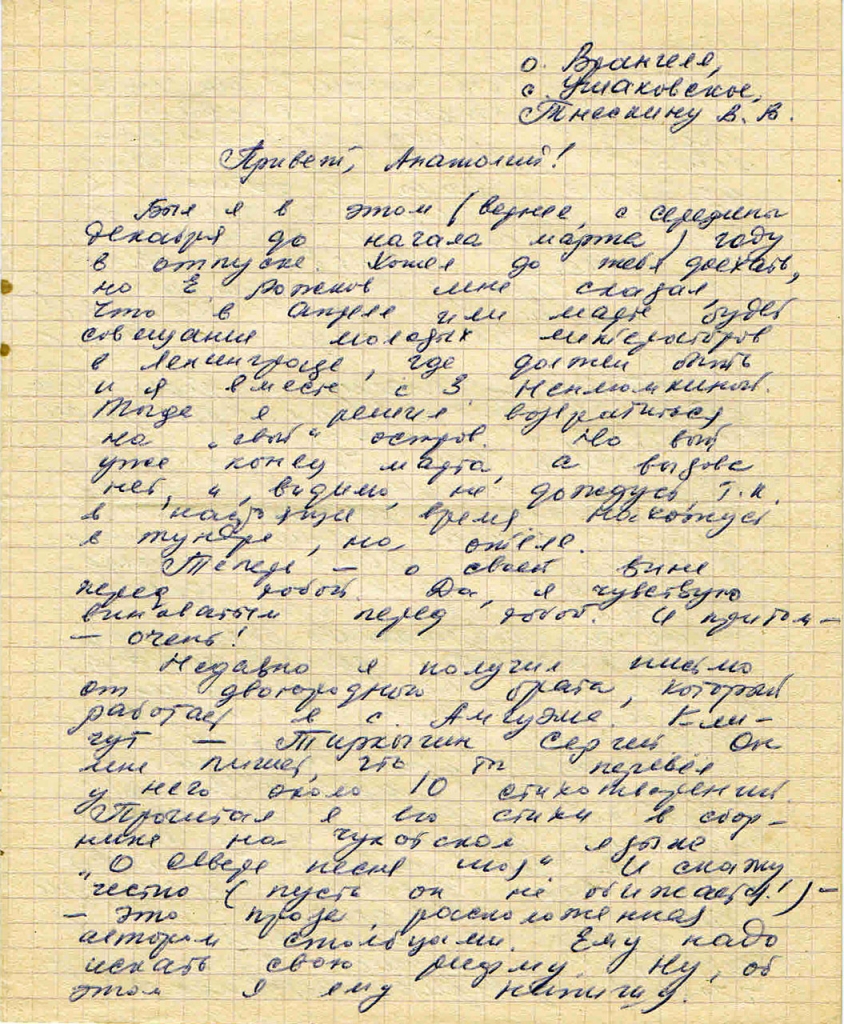 о. Врангеля,
с. Ушаковское,
Тнескину В. В.
Привет, Анатолий!
Был я в этом (вернее, с середины
декабря до начала марта) году
в отпуске. Хотел до тебя доехать,
но Е. Рожков мне сказал,
что в апреле или марте будет
совещание молодых литераторов
в Ленинграде, где должен быть
и я вместе с З. Ненлюмкиной.
Тогда я решил возвратиться
на „свой“ остров. Но вот
уже конец марта, а вызова
нет, и, видимо, не дождусь, т.к.
в настоящее время нахожусь
в тундре, на отёле.
Теперь – о своей вине
перед тобой. Да, я чувствую
виноватым перед тобой. И притом –
– очень!
Недавно я получил письмо
от двоюродного брата, который
работает в с. Амгуэма. Кли-
чут – Тиркыгин Сергей. Он
мне пишет, что ты перевёл
у него около 10 стихотворений.
Прочитал я его стихи в сбор-
нике на чукотском языке
„О Севере песня моя“. И скажу
честно (пусть он не обижается!) –
– это проза, расположенная
автором столбцами. Ему надо
искать свою рифму. Ну, об
этом я ему напишу.